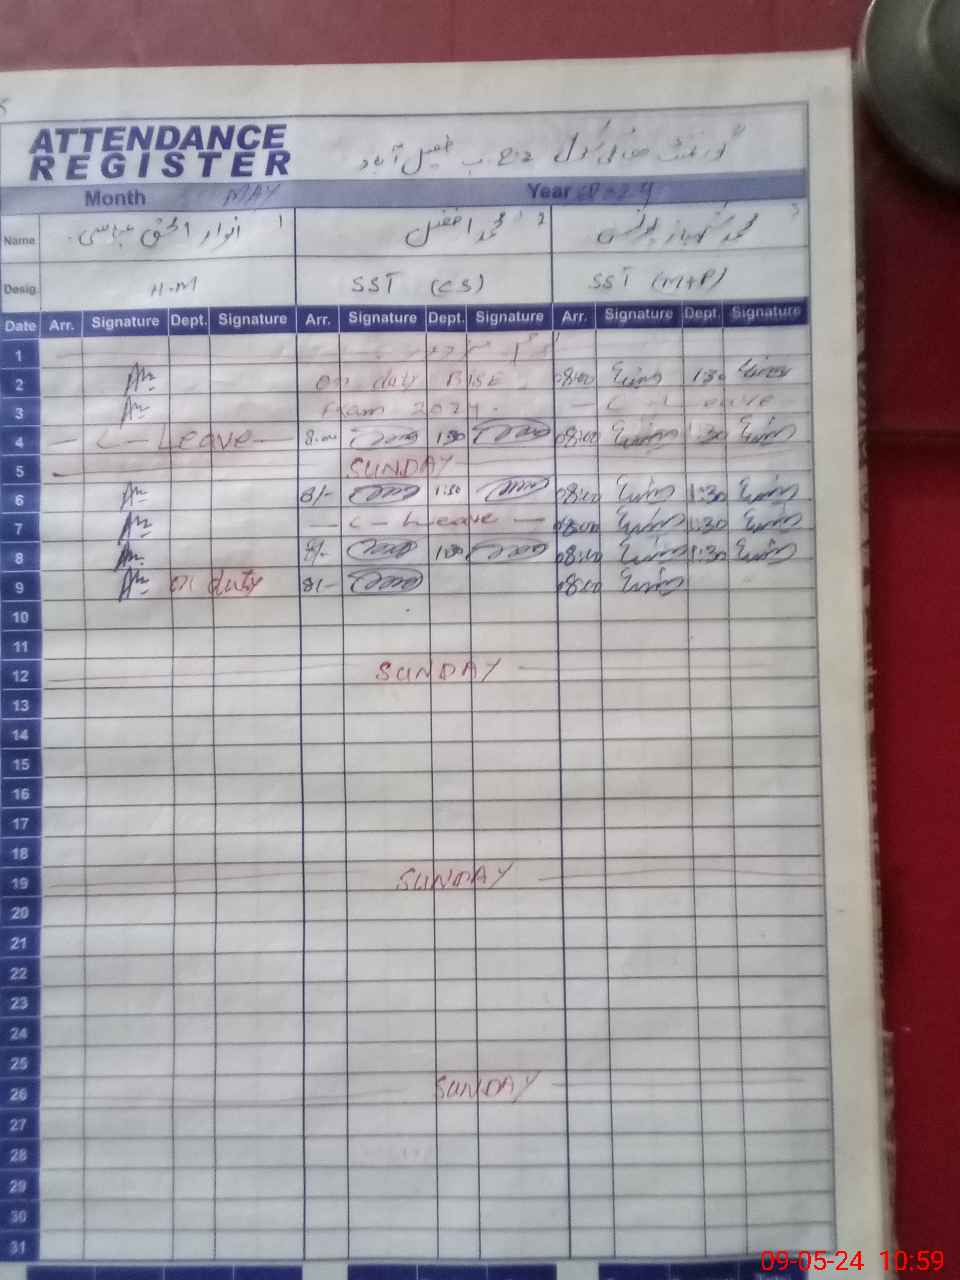 ATTENDANCE
REGISTER
گورنمنٹ ہائی سکول ج ب فیصل آباد
Month MAY Year 2024
Name. انوار الحق عباسی 1 محمد افضل 2 محمد شہباز یونس 3
Desig. H.M SST (CS) SST (M+P)
Date Arr. Signature Dept. Signature Arr. Signature Dept. Signature Arr. Signature Dept. Signature
1
2 on duty BISE 08:00 1:30
3 Exam 2024. - C - Leave
4 - C - Leave - 8:00 1:30 08:00 1:30
5 SUNDAY
6 8/- 1:30 08:00 1:30
7 - C - Leave - 08:00 1:30
8 8/- 1:30 08:00 1:30
9 on duty 8/- 08:00
10
11
12 SUNDAY
13
14
15
16
17
18
19 SUNDAY
20
21
22
23
24
25
26 SUNDAY
27
28
29
30
31
09-05-24 10:59